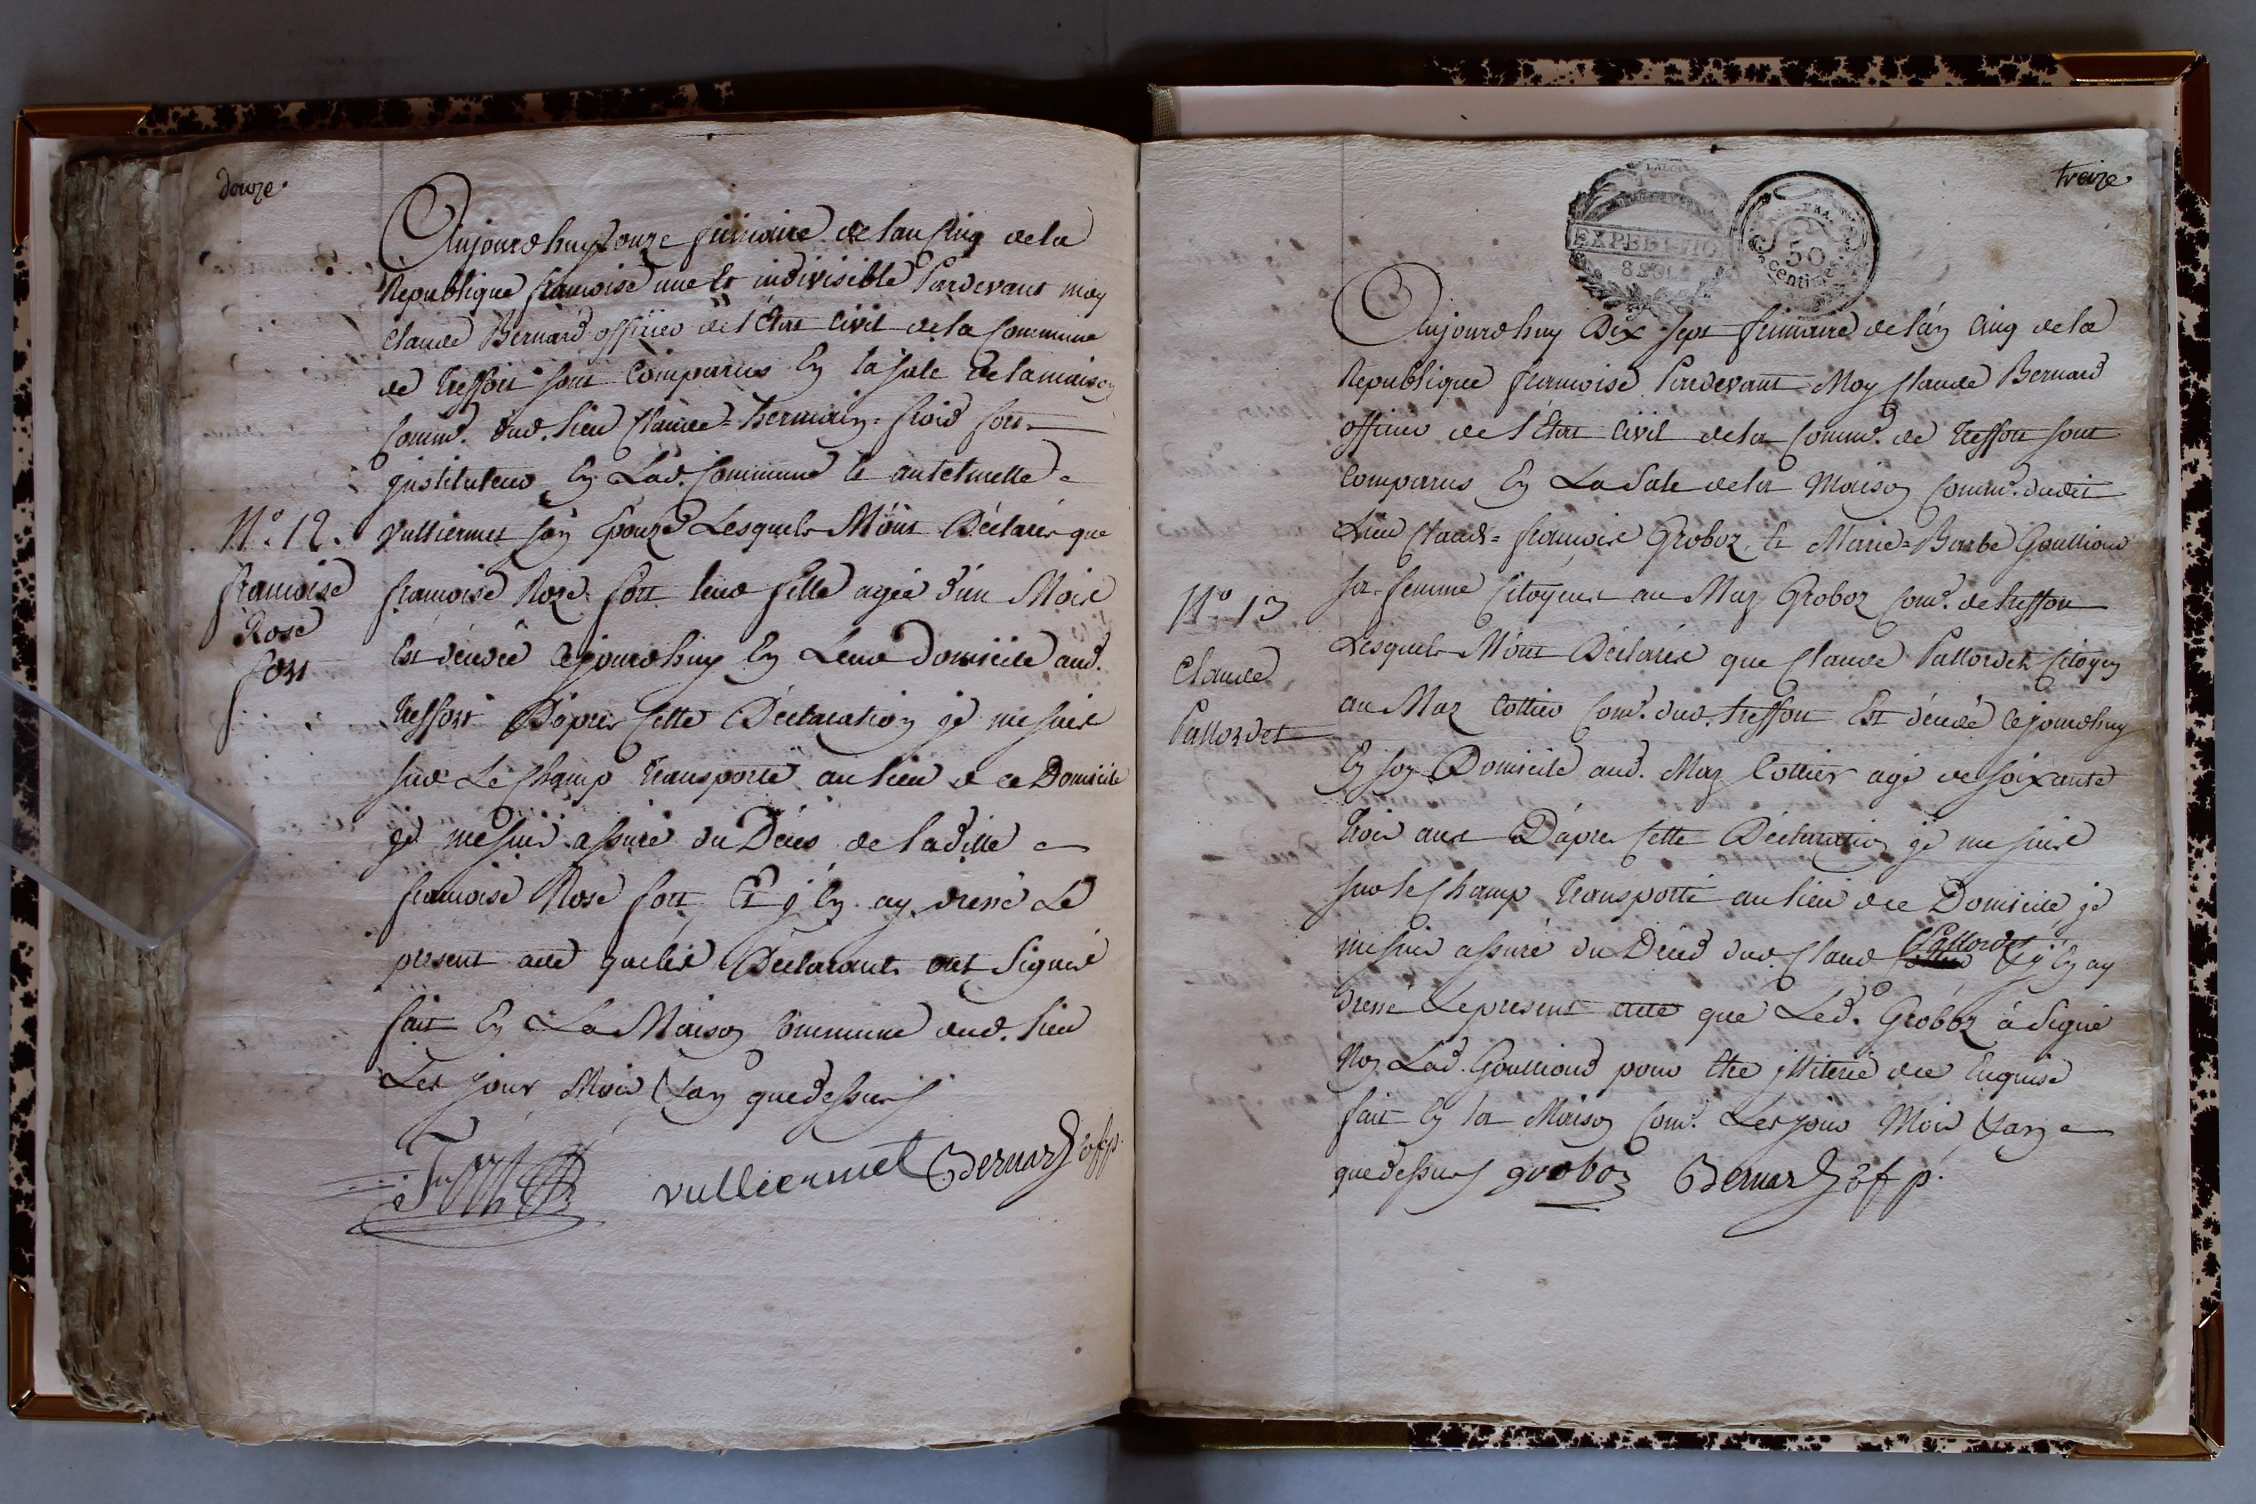 douze.
Aujourdhuy onze frimaire de lan Cinq de la
Republique francoise une et indivisible Pardevant moy
Claude Bernard officier de l'État Civil de la Commune
de Treffort sont Comparus En la sale de la maison
Comm.e dud. lieu Claude=Germain=froid fort
jnstituteur En Lad. Commune et
Vulliermet son Epouze Lesquels M'ont Déclarés que
N.o 12.
francoise
Rose
fort
francoise Roze fort leur fille agée d'un Mois
Est décédée cejourdhuy En Leur Domicile aud.
Treffort D'apres Cette Déclaration je me suis
sur Le Champ Transporté au lieu de ce Domicile
je me suis assuré du Déces de laditte
francoise Rose fort Et j'En ay dressé Le
present acte que les Déclarants ont Signés
fait En La Maison Commune dud. lieu
Les jour Mois & an quedessus
Fort vulliermet Bernard off p.
treize.
EXPEDITIO
50
centimes
Aujourdhuy Dix sept frimaire de l'an Cinq de la
Republique francoise Pardevant Moy Claude Bernard
officier de l'État Civil de la Comm.e de Treffort sont
Comparus En La Sale de la Maison Comm.e dudit
Lieu Claude=francois Groboz et Marie=Barbe Goullioud
sa femme Citoyens au Maz Groboz Com.e de treffort
N.o 13
Claude
Pallordet
Lesquels M'ont Déclarés que Claude Pallordet Citoyen
au Maz Cottier Com.e dud. treffort Est décédé cejourdhuy
En son Domicile aud. Maz Cottier agé de soixante
Trois ans D'apres Cette Déclaration je me suis
sur le Champ Transporté au lieu de ce Domicile je
me suis assuré du Déces dud. Claude Pallordet & j'En ay
dressé Le present acte que Led. Groboz à Signé
Non Lad. Goullioud pour Etre jlliterée de ce Enquise
fait En la Maison Com.e Les jour Mois & an
quedessus groboz Bernard off p.